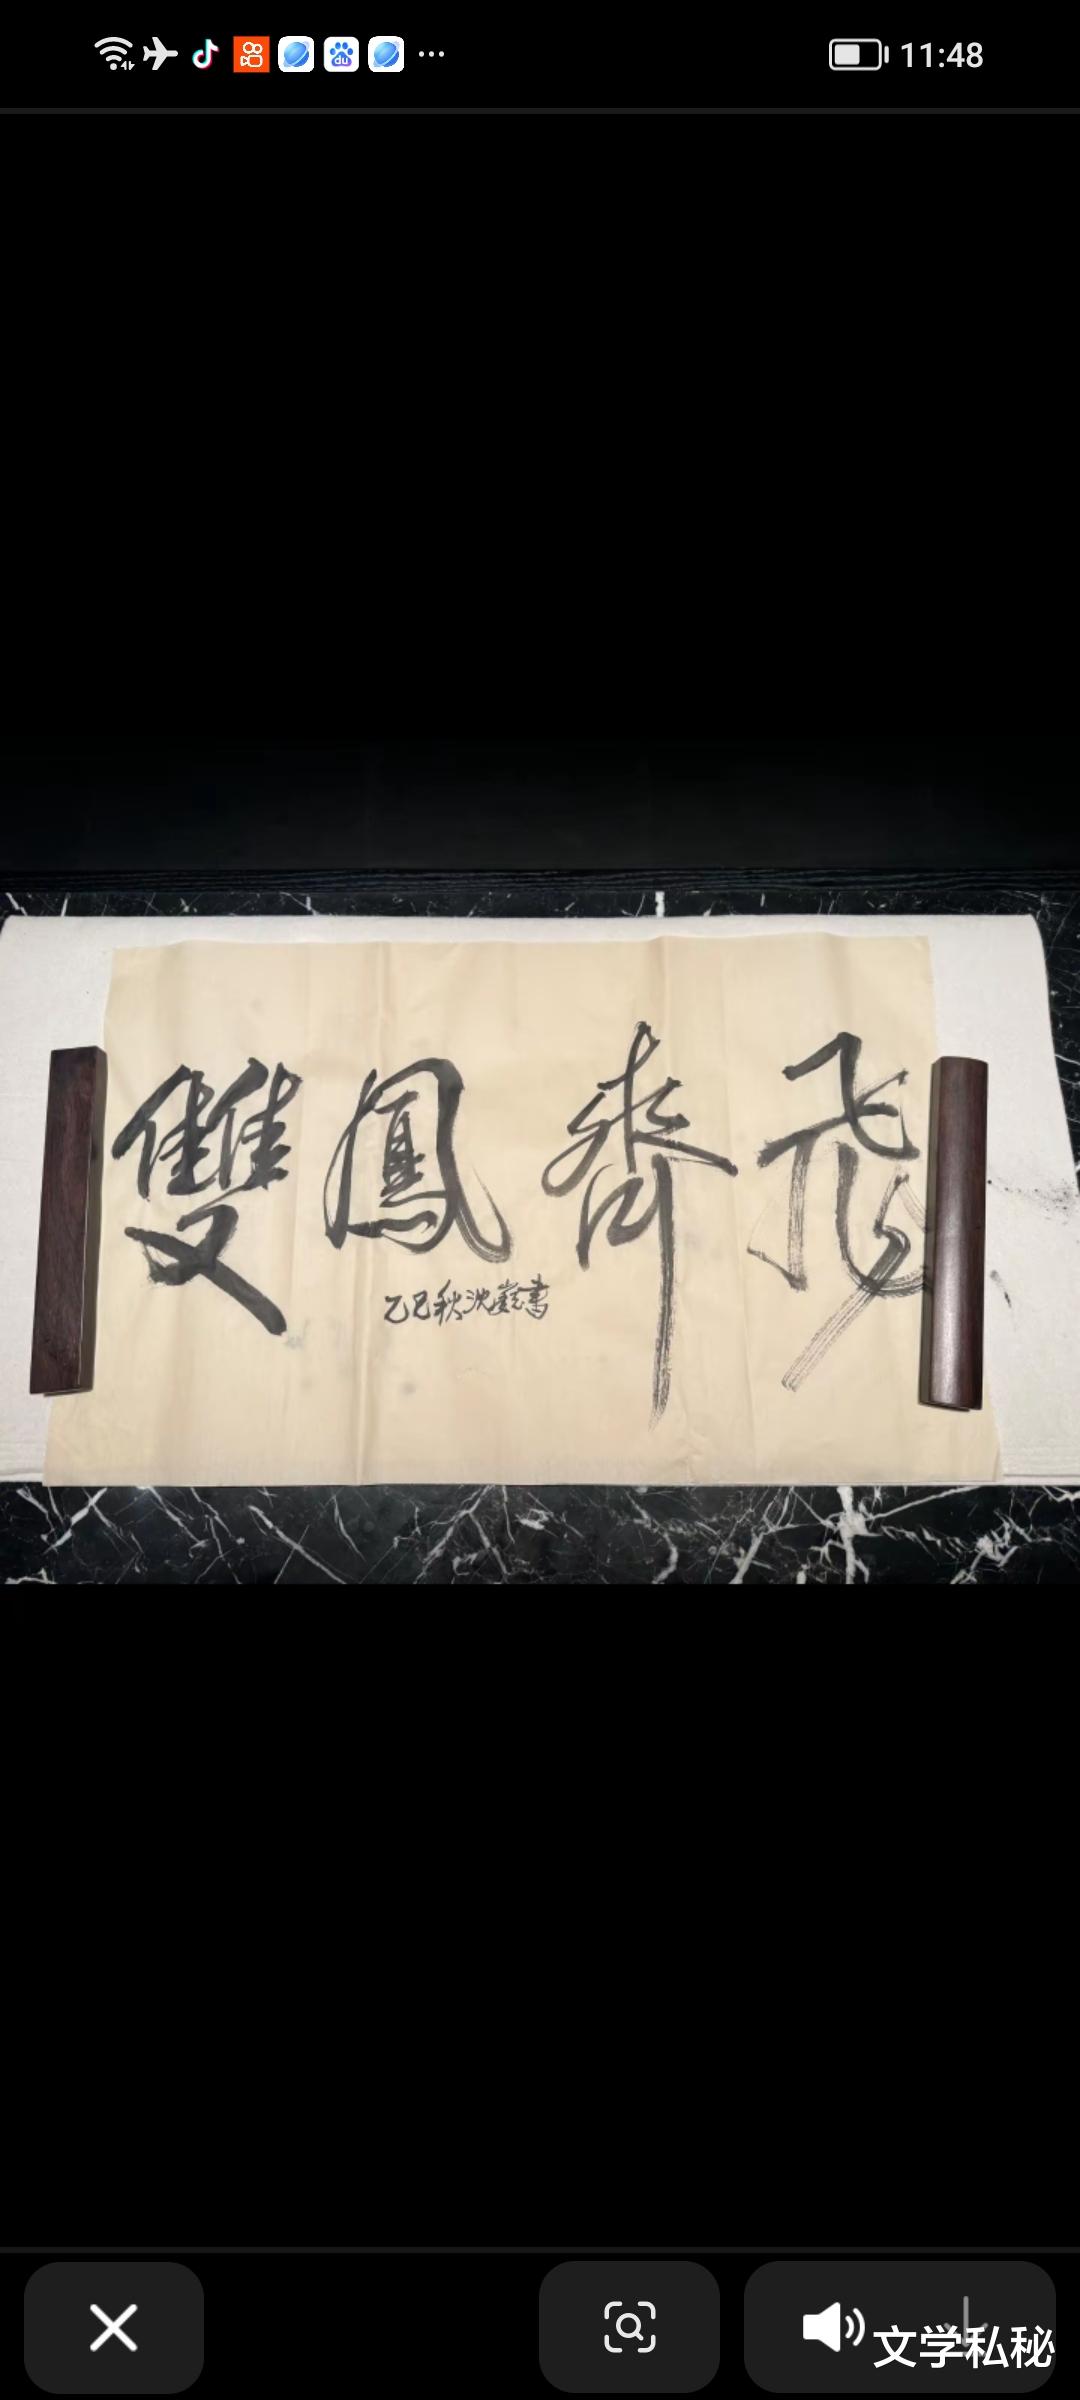 11:48
雙鳳齊飛
乙巳秋沈巖書
文学私秘